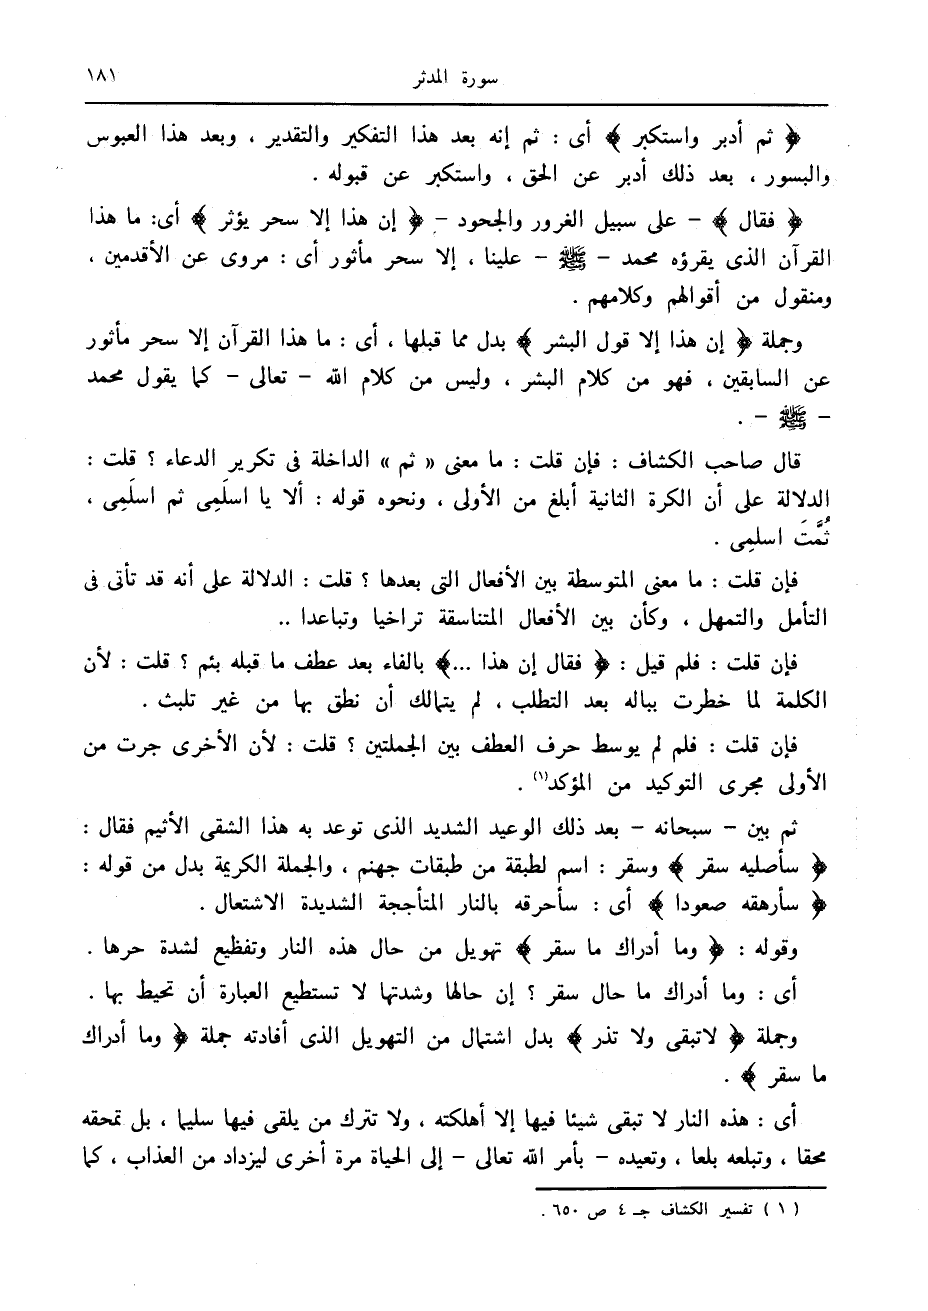 سورة المدثر ١٨١
﴿ ثم أدبر واستكبر ﴾ أى : ثم إنه بعد هذا التفكير والتقدير ، وبعد هذا العبوس
والبسور ، بعد ذلك أدبر عن الحق ، واستكبر عن قبوله .
﴿ فقال ﴾ – على سبيل الغرور والجحود – ﴿ إن هذا إلا سحر يؤثر ﴾ أى: ما هذا
القرآن الذى يقرؤه محمد – ﷺ – علينا ، إلا سحر مأثور أى : مروى عن الأقدمين ،
ومنقول من أقوالهم وكلامهم .
وجملة ﴿ إن هذا إلا قول البشر ﴾ بدل مما قبلها ، أى : ما هذا القرآن إلا سحر مأثور
عن السابقين ، فهو من كلام البشر ، وليس من كلام الله – تعالى – كما يقول محمد
– ﷺ – .
قال صاحب الكشاف : فإن قلت : ما معنى « ثم » الداخلة فى تكرير الدعاء ؟ قلت :
الدلالة على أن الكرة الثانية أبلغ من الأولى ، ونحوه قوله : ألا يا اسلَمِى ثم اسلَمِى ،
ثُمَّتَ اسلمِى .
فإن قلت : ما معنى المتوسطة بين الأفعال التى بعدها ؟ قلت : الدلالة على أنه قد تأتى فى
التأمل والتمهل ، وكأن بين الأفعال المتناسقة تراخيا وتباعدا ..
فإن قلت : فلم قيل : ﴿ فقال إن هذا ...﴾ بالفاء بعد عطف ما قبله بثم ؟ قلت : لأن
الكلمة لما خطرت بباله بعد التطلب ، لم يتمالك أن نطق بها من غير تلبث .
فإن قلت : فلم لم يوسط حرف العطف بين الجملتين ؟ قلت : لأن الأخرى جرت من
الأولى مجرى التوكيد من المؤكد(١) .
ثم بين – سبحانه – بعد ذلك الوعيد الشديد الذى توعد به هذا الشقى الأثيم فقال :
﴿ سأصليه سقر ﴾ وسقر : اسم لطبقة من طبقات جهنم ، والجملة الكريمة بدل من قوله :
﴿ سأرهقه صعودا ﴾ أى : سأحرقه بالنار المتأججة الشديدة الاشتعال .
وقوله : ﴿ وما أدراك ما سقر ﴾ تهويل من حال هذه النار وتفظيع لشدة حرها .
أى : وما أدراك ما حال سقر ؟ إن حالها وشدتها لا تستطيع العبارة أن تحيط بها .
وجملة ﴿ لاتبقى ولا تذر ﴾ بدل اشتمال من التهويل الذى أفادته جملة ﴿ وما أدراك
ما سقر ﴾ .
أى : هذه النار لا تبقى شيئا فيها إلا أهلكته ، ولا تترك من يلقى فيها سليما ، بل تمحقه
محقا ، وتبلعه بلعا ، وتعيده – بأمر الله تعالى – إلى الحياة مرة أخرى ليزداد من العذاب ، كما
( ١ ) تفسير الكشاف جـ ٤ ص ٦٥٠ .